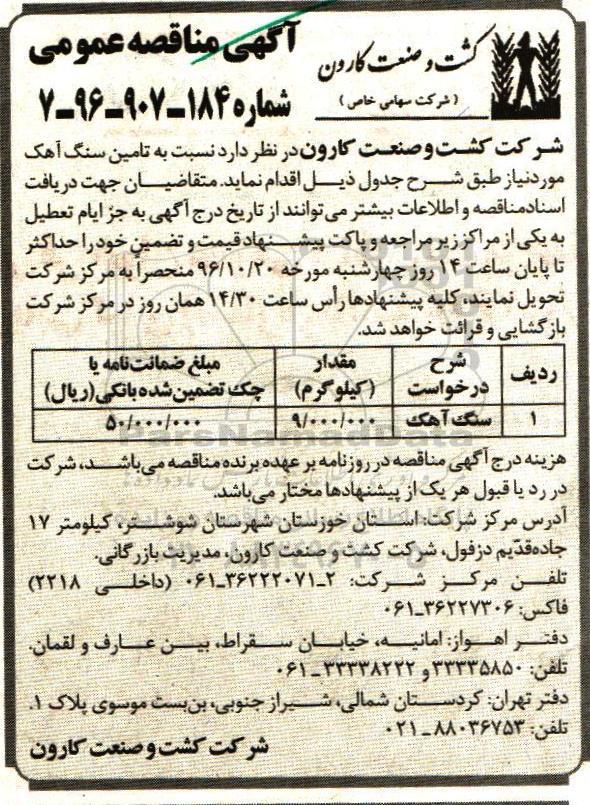 آگهی مناقصه عمومی
شماره ۱۸۴-۹۰۷-۹۶-۷
کشت و صنعت کارون
(شرکت سهامی خاص)
شرکت کشت و صنعت کارون در نظر دارد نسبت به تامین سنگ آهک
مورد نیاز طبق شرح جدول ذیل اقدام نماید. متقاضیان جهت دریافت
اسناد مناقصه و اطلاعات بیشتر می توانند از تاریخ درج آگهی به جز ایام تعطیل
به یکی از مراکز زیر مراجعه و پاکت پیشنهاد قیمت و تضمین خود را حداکثر
تا پایان ساعت ۱۴ روز چهارشنبه مورخه ۹۶/۱۰/۲۰ منحصراً به مرکز شرکت
تحویل نمایند، کلیه پیشنهادها رأس ساعت ۱۴/۳۰ همان روز در مرکز شرکت
بازگشایی و قرائت خواهد شد.
ردیف | شرح درخواست | مقدار (کیلوگرم) | مبلغ ضمانت نامه یا چک تضمین شده بانکی (ریال)
۱ | سنگ آهک | ۹/۰۰۰/۰۰۰ | ۵۰/۰۰۰/۰۰۰
ParsNamadData
هزینه درج آگهی مناقصه در روزنامه بر عهده برنده مناقصه می باشد، شرکت
در رد یا قبول هر یک از پیشنهادها مختار می باشد.
آدرس مرکز شرکت: استان خوزستان شهرستان شوشتر، کیلومتر ۱۷
جاده قدیم دزفول، شرکت کشت و صنعت کارون، مدیریت بازرگانی.
تلفن مرکز شرکت: ۲-۳۶۲۲۲۰۷۱-۰۶۱ (داخلی ۲۲۱۸)
فاکس: ۳۶۲۲۷۳۰۶-۰۶۱
دفتر اهواز: امانیه، خیابان سقراط، بین عارف و لقمان.
تلفن: ۳۳۳۳۵۸۵۰ و ۳۳۳۳۸۲۲۲-۰۶۱
دفتر تهران: کردستان شمالی، شیراز جنوبی، بن بست موسوی پلاک ۱.
تلفن: ۸۸۰۳۶۷۵۳-۰۲۱
شرکت کشت و صنعت کارون